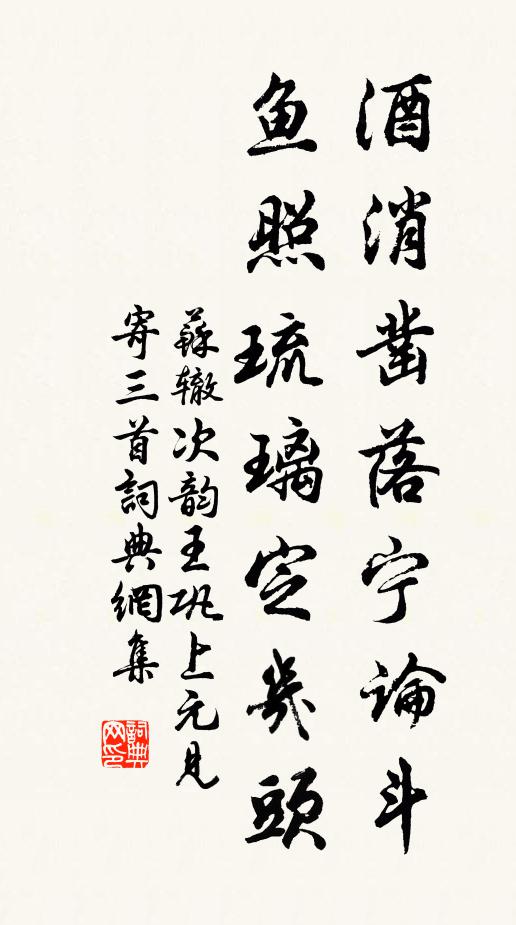 酒消凿落宁论斗
鱼照琉璃定几頭
蘇辙次韵王巩上元見
寄三首詞典網集
詞典
网印